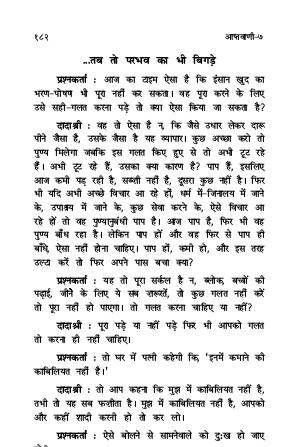 १८२ आप्तवाणी-७
...तब तो परभव का भी बिगड़े
प्रश्नकर्ता : आज का टाइम ऐसा है कि इंसान खुद का
भरण-पोषण भी पूरा नहीं कर सकता। वह पूरा करने के लिए
उसे सही-गलत करना पड़े तो क्या ऐसा किया जा सकता है?
दादाश्री : वह तो ऐसा है न, कि जैसे उधार लेकर दारू
पीने जैसा है, उसके जैसा है यह व्यापार। कुछ अच्छा करो तो
पुण्य मिलेगा जबकि इस गलत किए हुए से तो अभी टूट रहे
हैं। अभी टूट रहे हैं, उसका क्या कारण है? पाप हैं, इसलिए
आज कमी पड़ रही है, सब्जी नहीं है, दूसरा कुछ नहीं है। फिर
भी यदि अभी अच्छे विचार आ रहे हों, धर्म में-जिनालय में जाने
के, उपाश्रय में जाने के, कुछ सेवा करने के, ऐसे विचार आ
रहे हों तो वह पुण्यानुबंधी पाप है। आज पाप है, फिर भी वह
पुण्य बाँध रहा है। लेकिन पाप हों और वह फिर से पाप ही
बाँधे, ऐसा नहीं होना चाहिए। पाप हों, कमी हो, और इस तरह
उल्टा करें तो फिर अपने पास बचा क्या?
प्रश्नकर्ता : यह तो पूरा सर्कल है न, ब्लोक, बच्चों की
पढ़ाई, जीने के लिए ये सब ज़रूरतें, तो कुछ गलत नहीं करें
तो पूरा नहीं हो पाएगा। तो गलत करना चाहिए या नहीं?
दादाश्री : पूरा पड़े या नहीं पड़े फिर भी आपको गलत
तो करना ही नहीं चाहिए।
प्रश्नकर्ता : तो घर में पत्नी कहेगी कि, 'इनमें कमाने की
काबिलियत नहीं है।'
दादाश्री : तो आप कहना कि मुझ में काबिलियत नहीं है,
तभी तो यह सब फजीता है। मुझ में काबिलियत नहीं है, आपको
और कहीं शादी करनी हो तो कर लो।
प्रश्नकर्ता : ऐसे बोलने से सामनेवाले को दुःख हो जाए